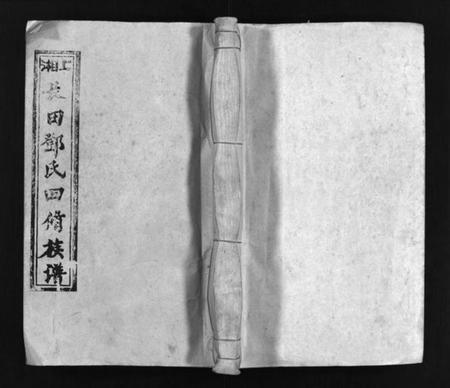 上湘
長田鄧氏四脩族譜